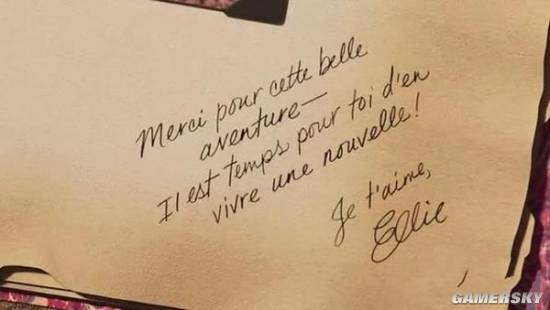 Merci pour cette belle
aventure—
Il est temps pour toi d'en
vivre une nouvelle!
Je t'aime,
Ellie
GAMERSKY